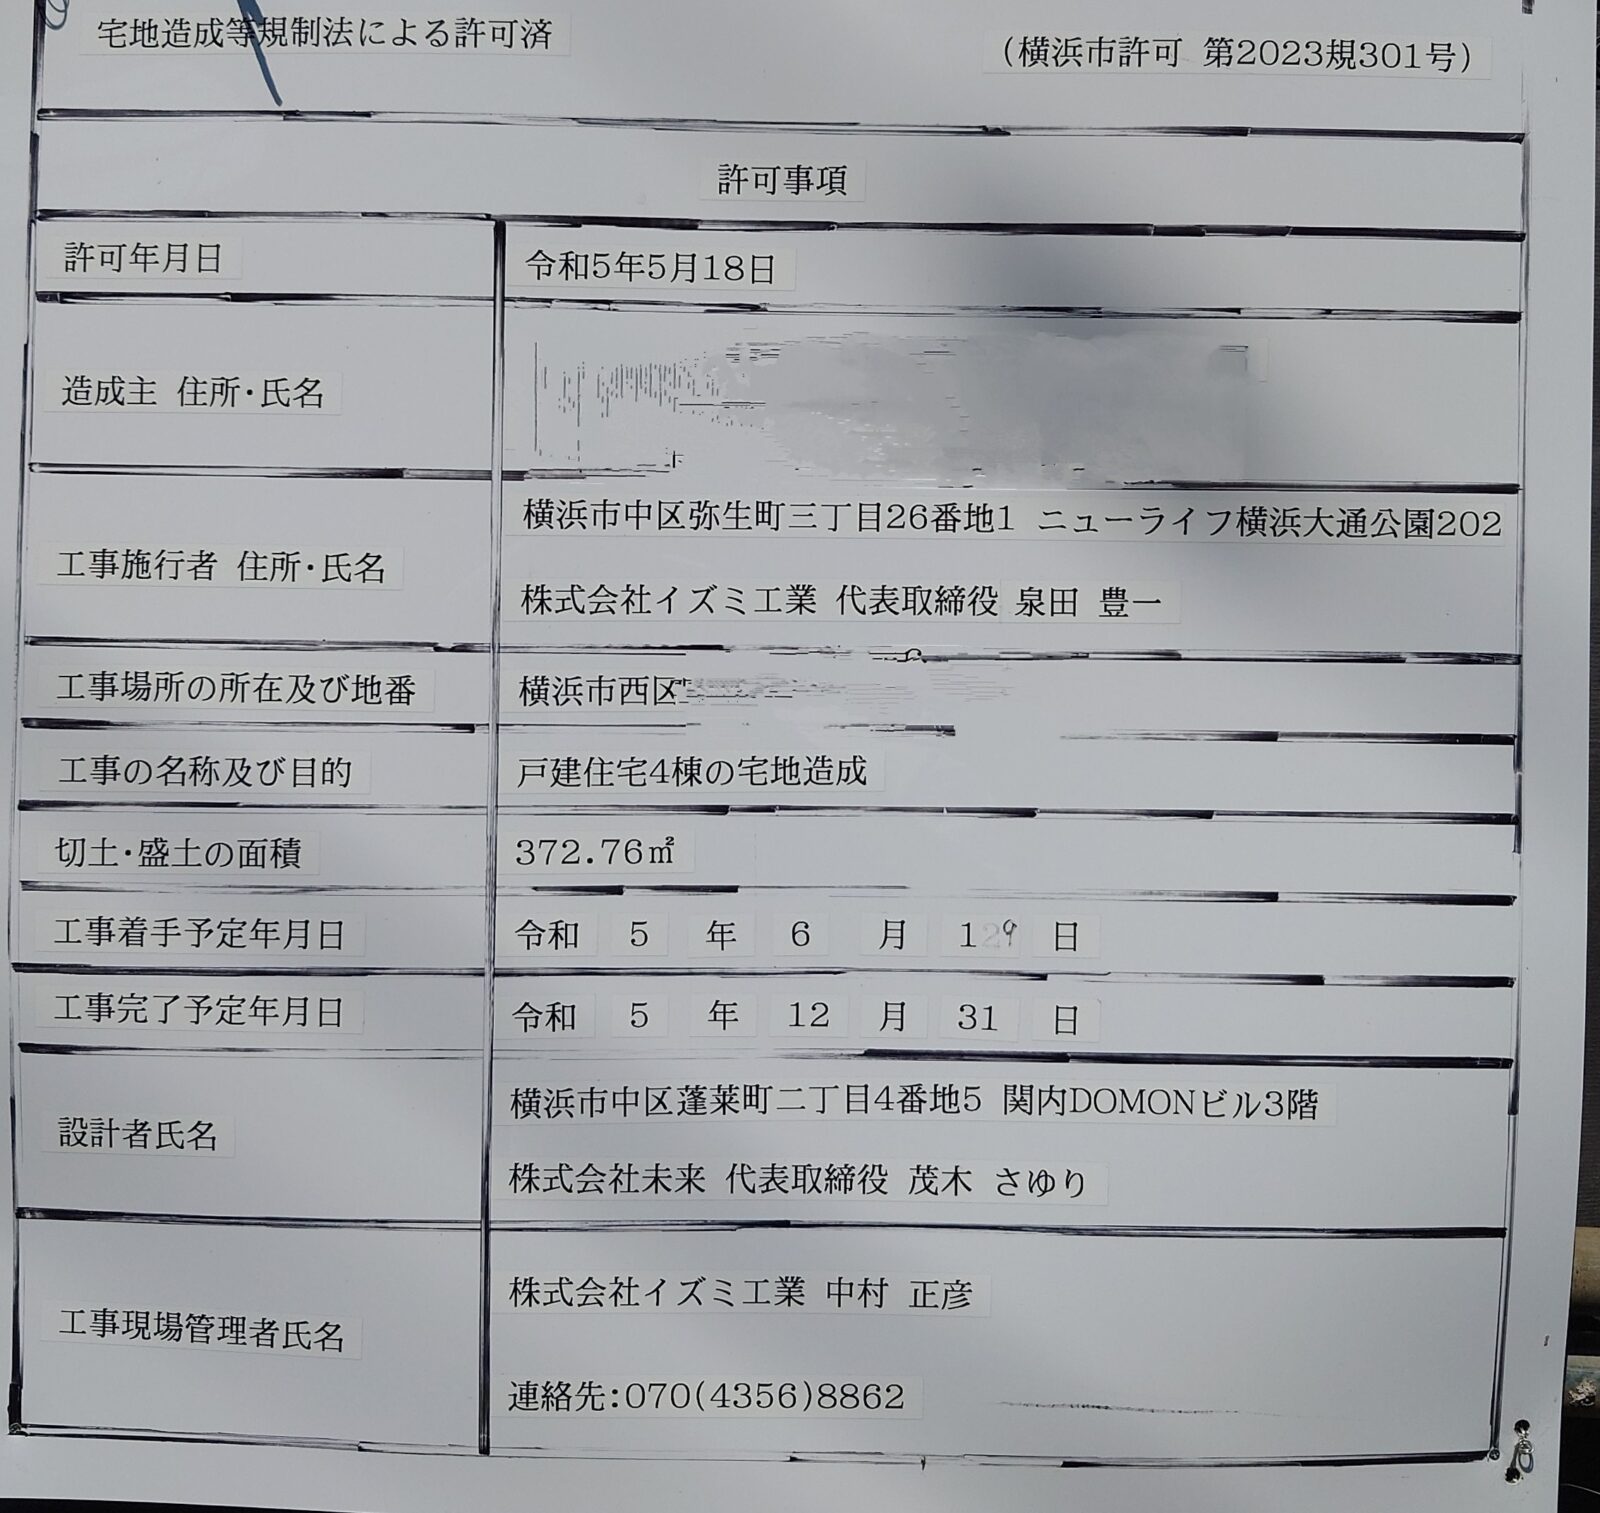 宅地造成等規制法による許可済
(横浜市許可 第2023規301号)
許可事項
許可年月日
令和5年5月18日
造成主 住所・氏名
工事施行者 住所・氏名
横浜市中区弥生町三丁目26番地1 ニューライフ横浜大通公園202
株式会社イズミ工業 代表取締役 泉田 豊一
工事場所の所在及び地番
横浜市西区
工事の名称及び目的
戸建住宅4棟の宅地造成
切土・盛土の面積
372.76㎡
工事着手予定年月日
令和 5 年 6 月 19 日
工事完了予定年月日
令和 5 年 12 月 31 日
設計者氏名
横浜市中区蓬莱町二丁目4番地5 関内DOMONビル3階
株式会社未来 代表取締役 茂木 さゆり
工事現場管理者氏名
株式会社イズミ工業 中村 正彦
連絡先:070(4356)8862